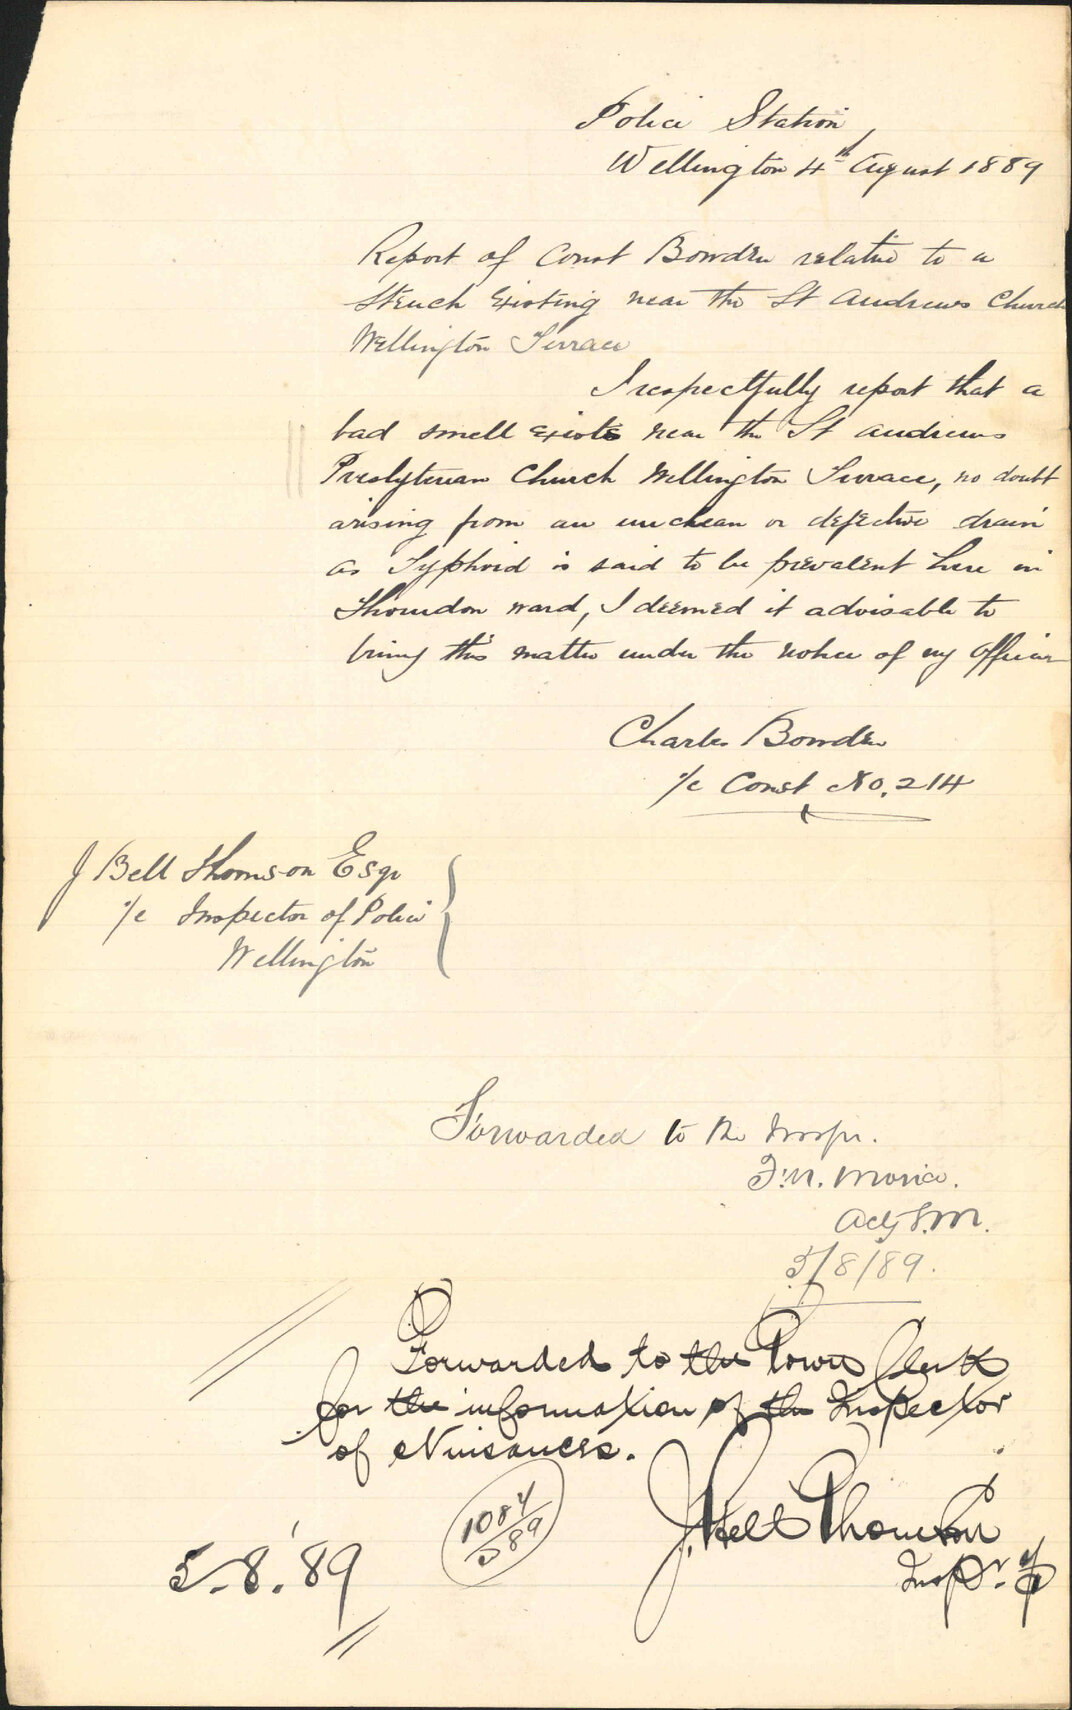 Police Station
Wellington 4th August 1889
Report of Const Bowden relative to a
Stench Existing near the St Andrews Church
Wellington Terrace
I respectfully report that a
bad smell exists near the St Andrews
Presbyterian Church Wellington Terrace, no doubt
arising from an unclean or defective drain
as Typhoid is said to be prevalent here in
Thorndon ward, I deemed it advisable to
bring this matter under the notice of my Officer
Charles Bowden
1/c Const No. 214
J Bell Thomson Esqr
1/c Inspector of Police
Wellington
Forwarded to the Inspr.
Actg S.M.
5/8/89.
Forwarded to the Town Clerk
for the information of the Inspector
of Nuisances.
1084/89
J. Bell Thomson
Inspr.
5.8.'89